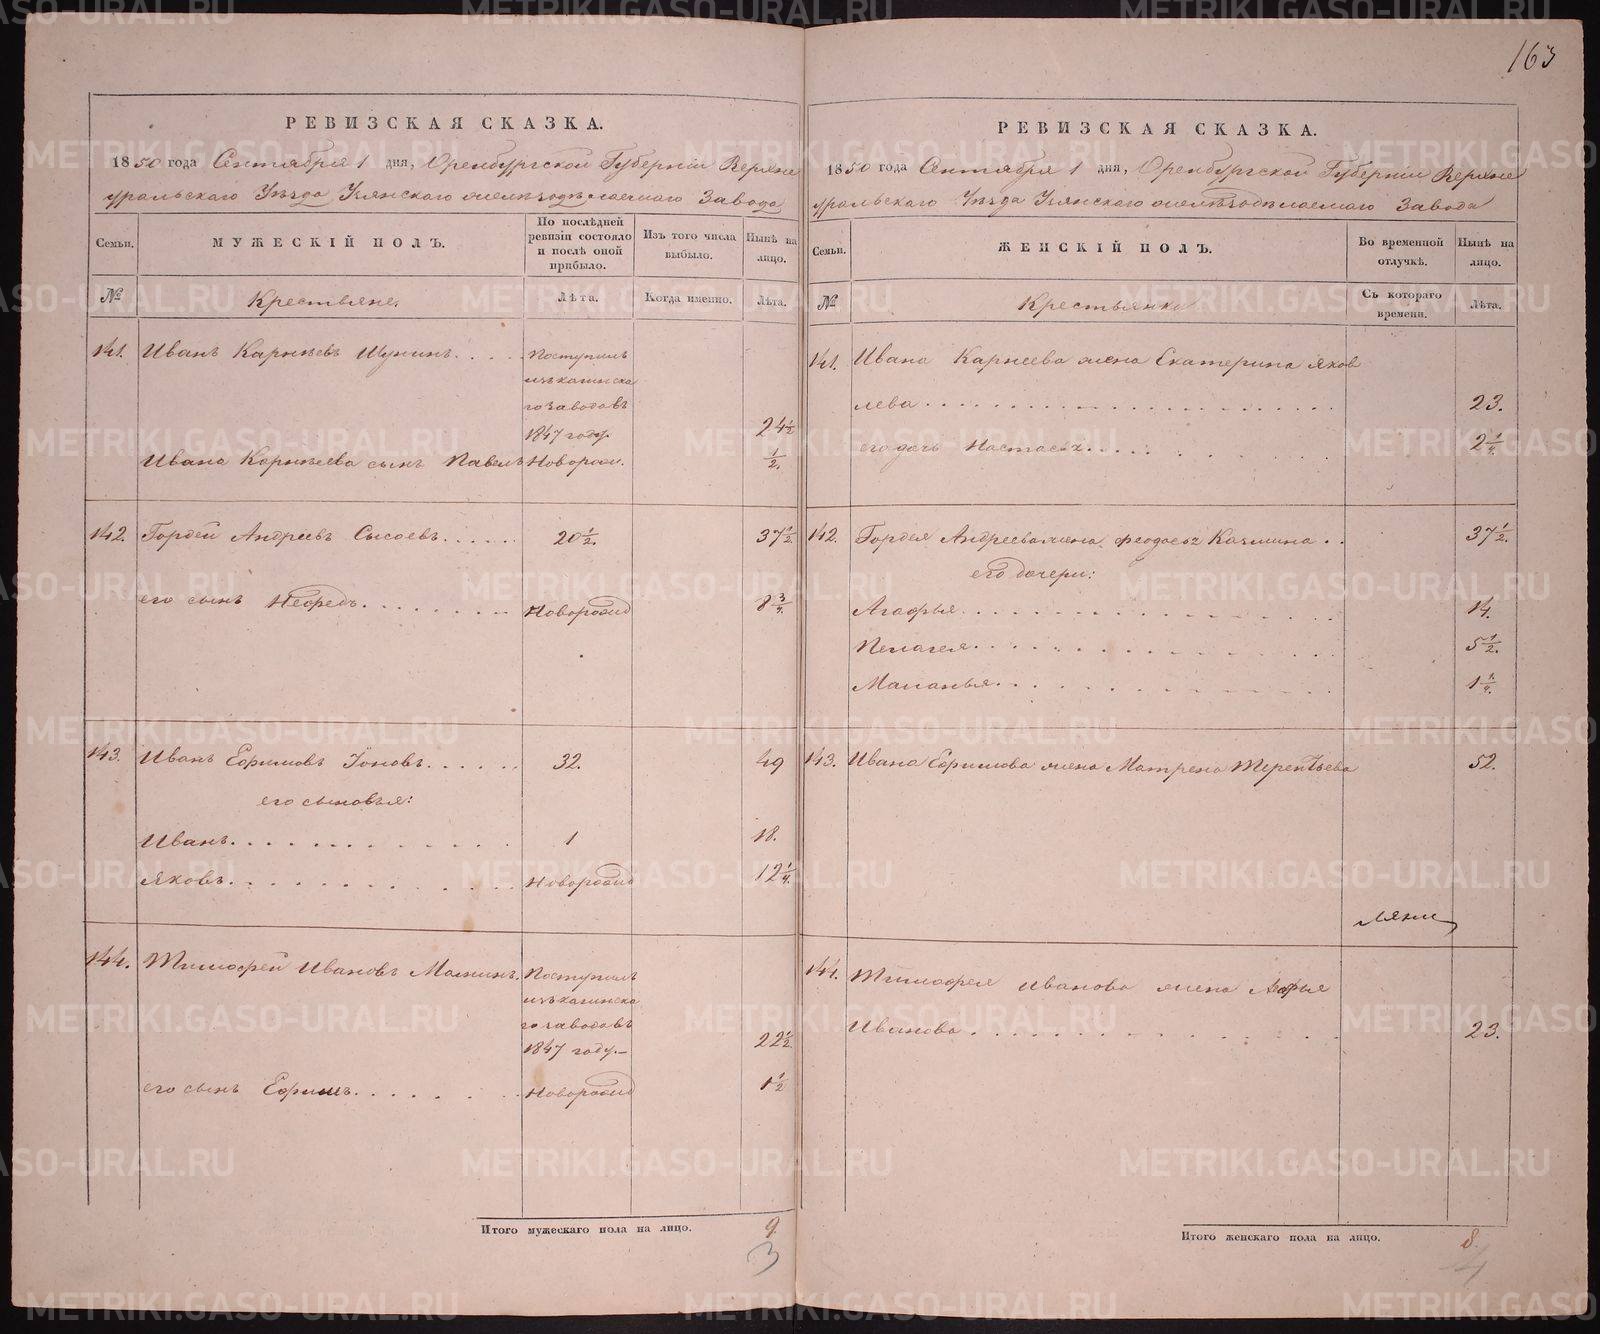 163
РЕВИЗСКАЯ СКАЗКА.
1850 года Сентября 1 дня, Оренбургской Губерніи Верхне
уральскаго Уѣзда Узянскаго желѣзодѣлаемаго Завода
Семьи.
МУЖЕСКІЙ ПОЛЪ.
По послѣдней ревизіи состояло и послѣ оной прибыло.
Изъ того числа выбыло.
Нынѣ на лицо.
№
Крестьяне.
Лѣта.
Когда именно.
Лѣта.
141. Иванъ Карнѣевъ Шунинъ. Поступилъ
изъ кагинска
го заводовъ
1847 году. 24 1/2
Ивана Корнѣева сынъ Павелъ Новорожд. 1/2.
142. Гордей Андреевъ Сысоевъ. 20 1/2. 37 1/2
его сынъ Новорожд 8 3/4
143. Иванъ Ефимовъ Іоновъ. 32. 49
его сыновья:
Иванъ. 1 18.
Яковъ. Новорожд 12 1/4.
144. Тимофей Ивановъ Малкинъ. Поступилъ
изъ кагинска
го заводовъ
1847 году. 22 1/2
его сынъ Ефимъ. Новорожд 1 1/2
Итого мужескаго пола на лицо. 9
3
РЕВИЗСКАЯ СКАЗКА.
1850 года Сентября 1 дня, Оренбургской Губерніи Верхне
уральскаго Уѣзда Узянскаго желѣзодѣлаемаго Завода
Семьи.
ЖЕНСКІЙ ПОЛЪ.
Во временной отлучкѣ.
Нынѣ на лицо.
№
Крестьянки
Съ котораго времени.
Лѣта.
141. Ивана Карнеева жена Екатерина Яков
лева 23.
его дочь Настасья. 2 1/4.
142. Гордея Андреева жена Феодосья Казмина 37 1/2.
его дочери:
Агафья 14.
Пелагея. 5 1/2.
Маланья. 1 1/4.
143. Ивана Ефимова жена Матрена Терентьева 52.
144. Тимофея Иванова жена
Иванова. 23.
Итого женскаго пола на лицо. 8.
4
METRIKI.GASO-URAL.RU